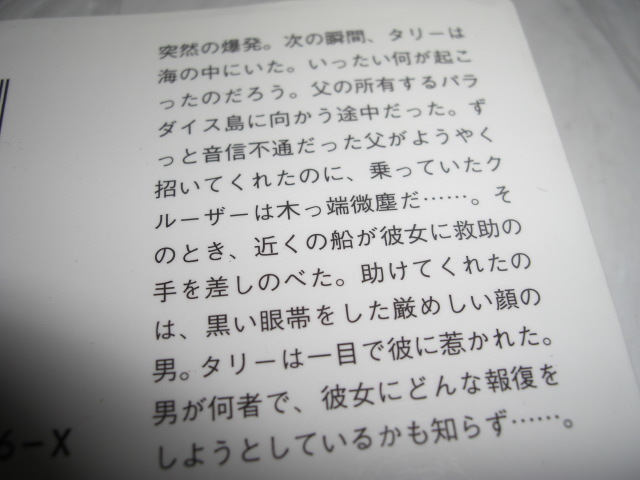 突然の爆発。次の瞬間、タリーは
海の中にいた。いったい何が起こ
ったのだろう。父の所有するパラ
ダイス島に向かう途中だった。ず
っと音信不通だった父がようやく
招いてくれたのに、乗っていたク
ルーザーは木っ端微塵だ……。そ
のとき、近くの船が彼女に救助の
手を差しのべた。助けてくれたの
は、黒い眼帯をした厳めしい顔の
男。タリーは一目で彼に惹かれた。
男が何者で、彼女にどんな報復を
しようとしているかも知らず……。
6-X